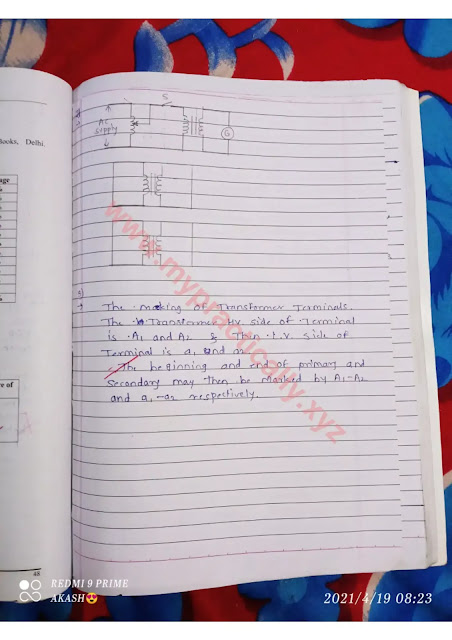 S
AC
supply
G
ooks, Delhi.
age
The making of Transformer Terminals.
The Transformer Hv side of Terminal
is A1 and A2 & Then L.V. side of
Terminal is a, and
The beginning and end of primary and
Secondary may then be marked by A1-A2
and a1-a2 respectively.
www.mypractically.xyz
e of
48
REDMI 9 PRIME
AKASH😍
2021/4/19 08:23